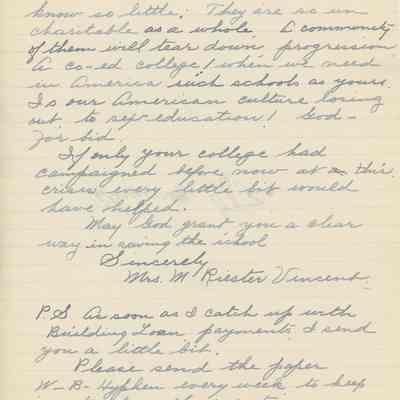 know so little. They are so un
charitable as a whole. A community
of them will tear down progression
A co-ed college! when we need
in America such schools as yours.
Is our American culture losing
out to sex education! God-
for bid
If only your college had
campaigned before now at a this
crisis every little bit would
have helped.
May God grant you a clear
way in saving the school
Sincerely
Mrs. M Riester Vincent.
P.S As soon as I catch up with
Building Loan payments I send
you a little bit.
Please send the paper
W-B-Hyphen every week to keep